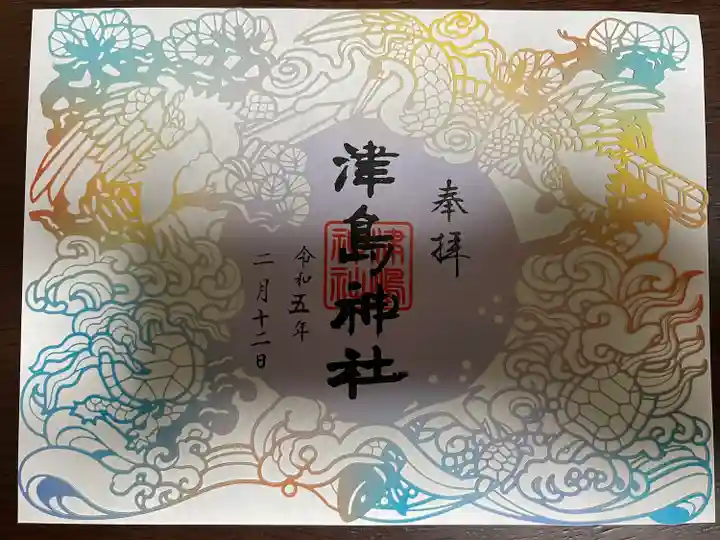 奉拝
津島神社
津島
神社
令和五年
二月十二日